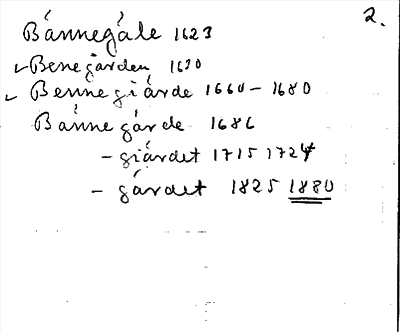 2.
Bánnegále 1623
✓ Benegården 1620
✓ Bennegiärde 1660 – 1680
Bánnegárde 1686
– giärdet 1715 1724
– gárdet 1825 1880